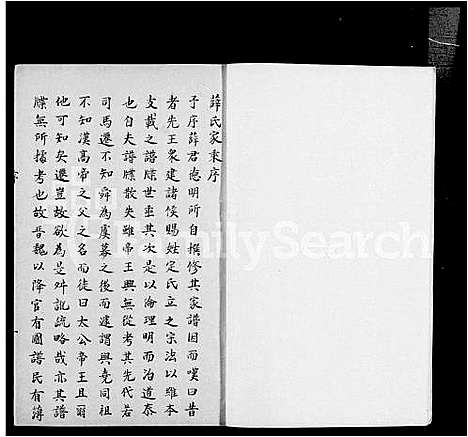 薛氏家乘序
予序薛君德明所自撰修其家譜因而嘆曰昔
者先王眾建諸侯賜姓定氏立之宗法以維本
支載之譜牒世垂其次是以倫理明而治道泰
也自夫譜牒散失雖帝王興無從考其先代若
司馬遷不知舜為虞幕之後而遽謂與堯同祖
不知漢高帝之父之名而徒曰太公帝王且爾
他可知矣遷豈故欲為是舛訛疏略哉亦其譜
牒無所據考也故晉魏以降官有國譜民有簿
FamilySearch